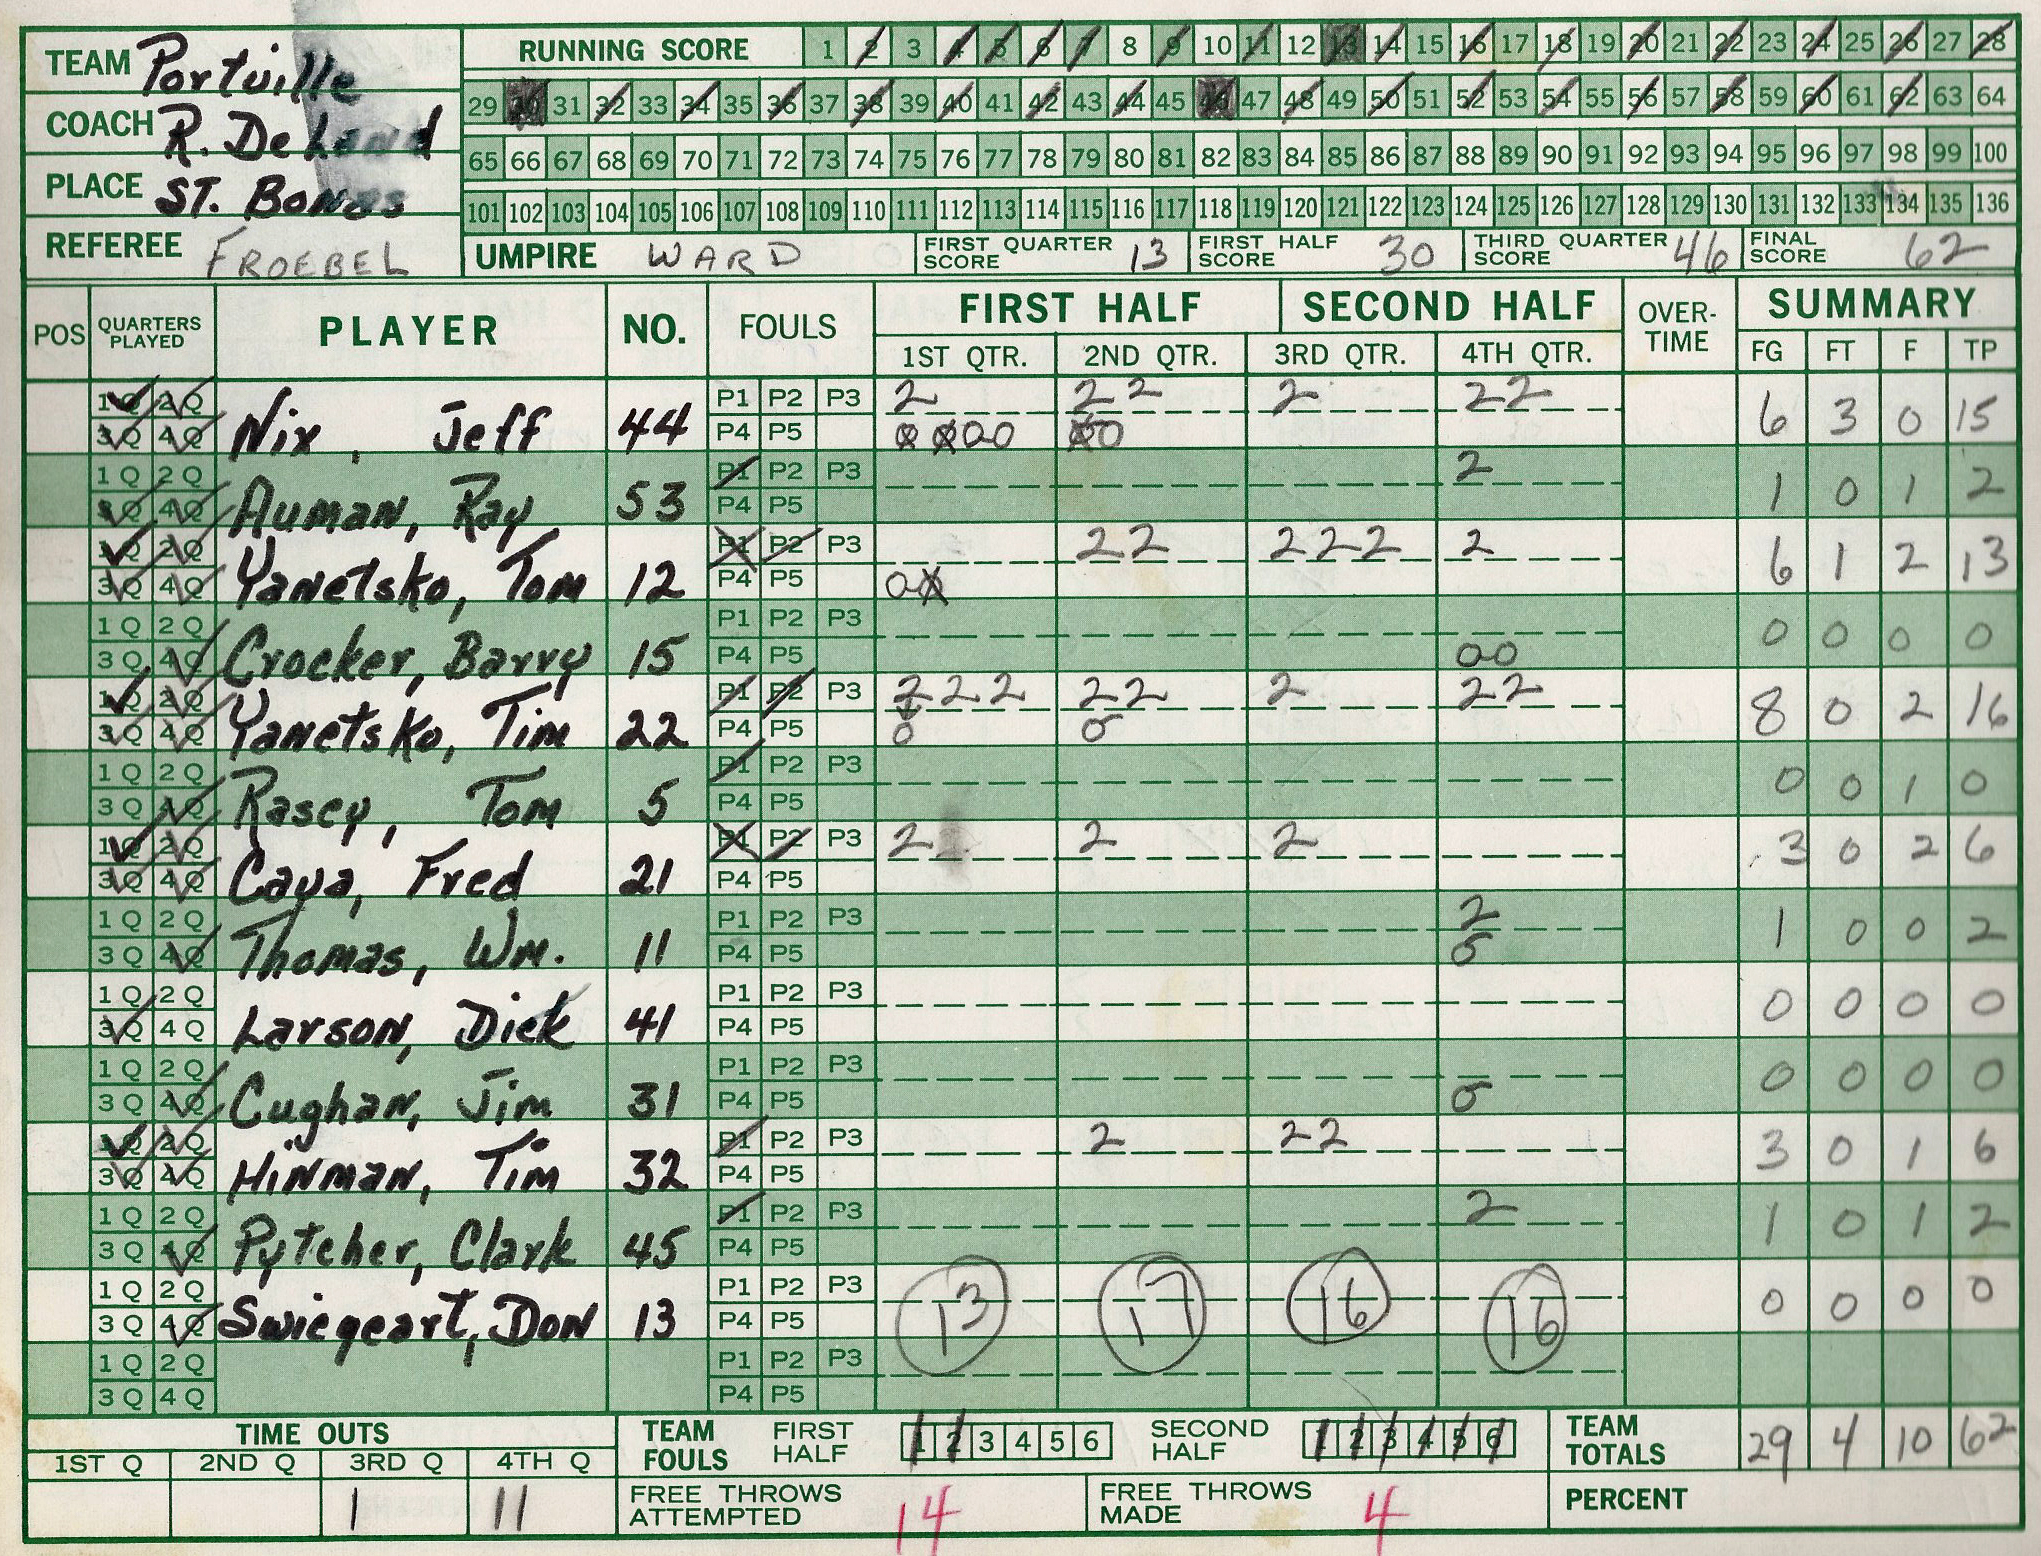 TEAM Portville
RUNNING SCORE 1 2 3 4 5 6 7 8 9 10 11 12 13 14 15 16 17 18 19 20 21 22 23 24 25 26 27 28
29 30 31 32 33 34 35 36 37 38 39 40 41 42 43 44 45 46 47 48 49 50 51 52 53 54 55 56 57 58 59 60 61 62 63 64
COACH R. DeLand
65 66 67 68 69 70 71 72 73 74 75 76 77 78 79 80 81 82 83 84 85 86 87 88 89 90 91 92 93 94 95 96 97 98 99 100
PLACE ST. BONAS
101 102 103 104 105 106 107 108 109 110 111 112 113 114 115 116 117 118 119 120 121 122 123 124 125 126 127 128 129 130 131 132 133 134 135 136
REFEREE FROEBEL UMPIRE WARD FIRST QUARTER SCORE 13 FIRST HALF SCORE 30 THIRD QUARTER SCORE 46 FINAL SCORE 62
POS QUARTERS PLAYED PLAYER NO. FOULS FIRST HALF SECOND HALF OVER-TIME SUMMARY
1ST QTR. 2ND QTR. 3RD QTR. 4TH QTR. FG FT F TP
1Q 2Q Nix, Jeff 44 P1 P2 P3 2 22 2 22 6 3 0 15
3Q 4Q P4 P5 0000 00
1Q 2Q Auman, Ray 53 P1 P2 P3 2 1 0 1 2
3Q 4Q P4 P5
1Q 2Q Yanetsko, Tom 12 P1 P2 P3 22 222 2 6 1 2 13
3Q 4Q P4 P5 00
1Q 2Q Crocker, Barry 15 P1 P2 P3 0 0 0 0
3Q 4Q P4 P5 00
1Q 2Q Yanetsko, Tim 22 P1 P2 P3 222 22 2 22 8 0 2 16
3Q 4Q P4 P5 0 0
1Q 2Q Rasey, Tom 5 P1 P2 P3 0 0 1 0
3Q 4Q P4 P5
1Q 2Q Caya, Fred 21 P1 P2 P3 2 2 2 3 0 2 6
3Q 4Q P4 P5
1Q 2Q Thomas, Wm. 11 P1 P2 P3 2 1 0 0 2
3Q 4Q P4 P5 0
1Q 2Q Larson, Dick 41 P1 P2 P3 0 0 0 0
3Q 4Q P4 P5
1Q 2Q Cughan, Jim 31 P1 P2 P3 0 0 0 0
3Q 4Q P4 P5 0
1Q 2Q Hinman, Tim 32 P1 P2 P3 2 22 3 0 1 6
3Q 4Q P4 P5
1Q 2Q Pytcher, Clark 45 P1 P2 P3 2 1 0 1 2
3Q 4Q P4 P5
1Q 2Q Swiegeart, Don 13 P1 P2 P3 13 17 16 16 0 0 0 0
3Q 4Q P4 P5
1Q 2Q P1 P2 P3
3Q 4Q P4 P5
TIME OUTS TEAM FOULS FIRST HALF 1 2 3 4 5 6 SECOND HALF 1 2 3 4 5 6 TEAM TOTALS 29 4 10 62
1ST Q 2ND Q 3RD Q 4TH Q
1 11 FREE THROWS ATTEMPTED 14 FREE THROWS MADE 4 PERCENT